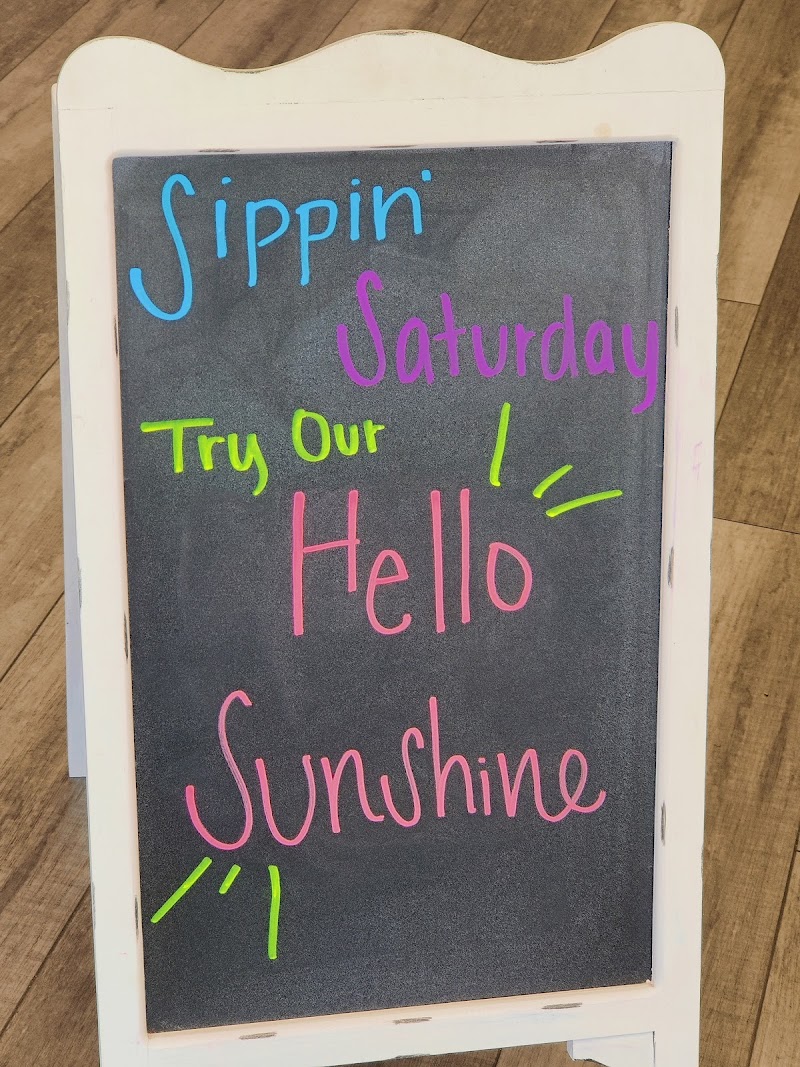 Sippin'
Saturday
Try Our
Hello
Sunshine